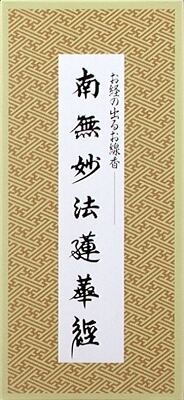 お経の出るお線香
南無妙法蓮華経